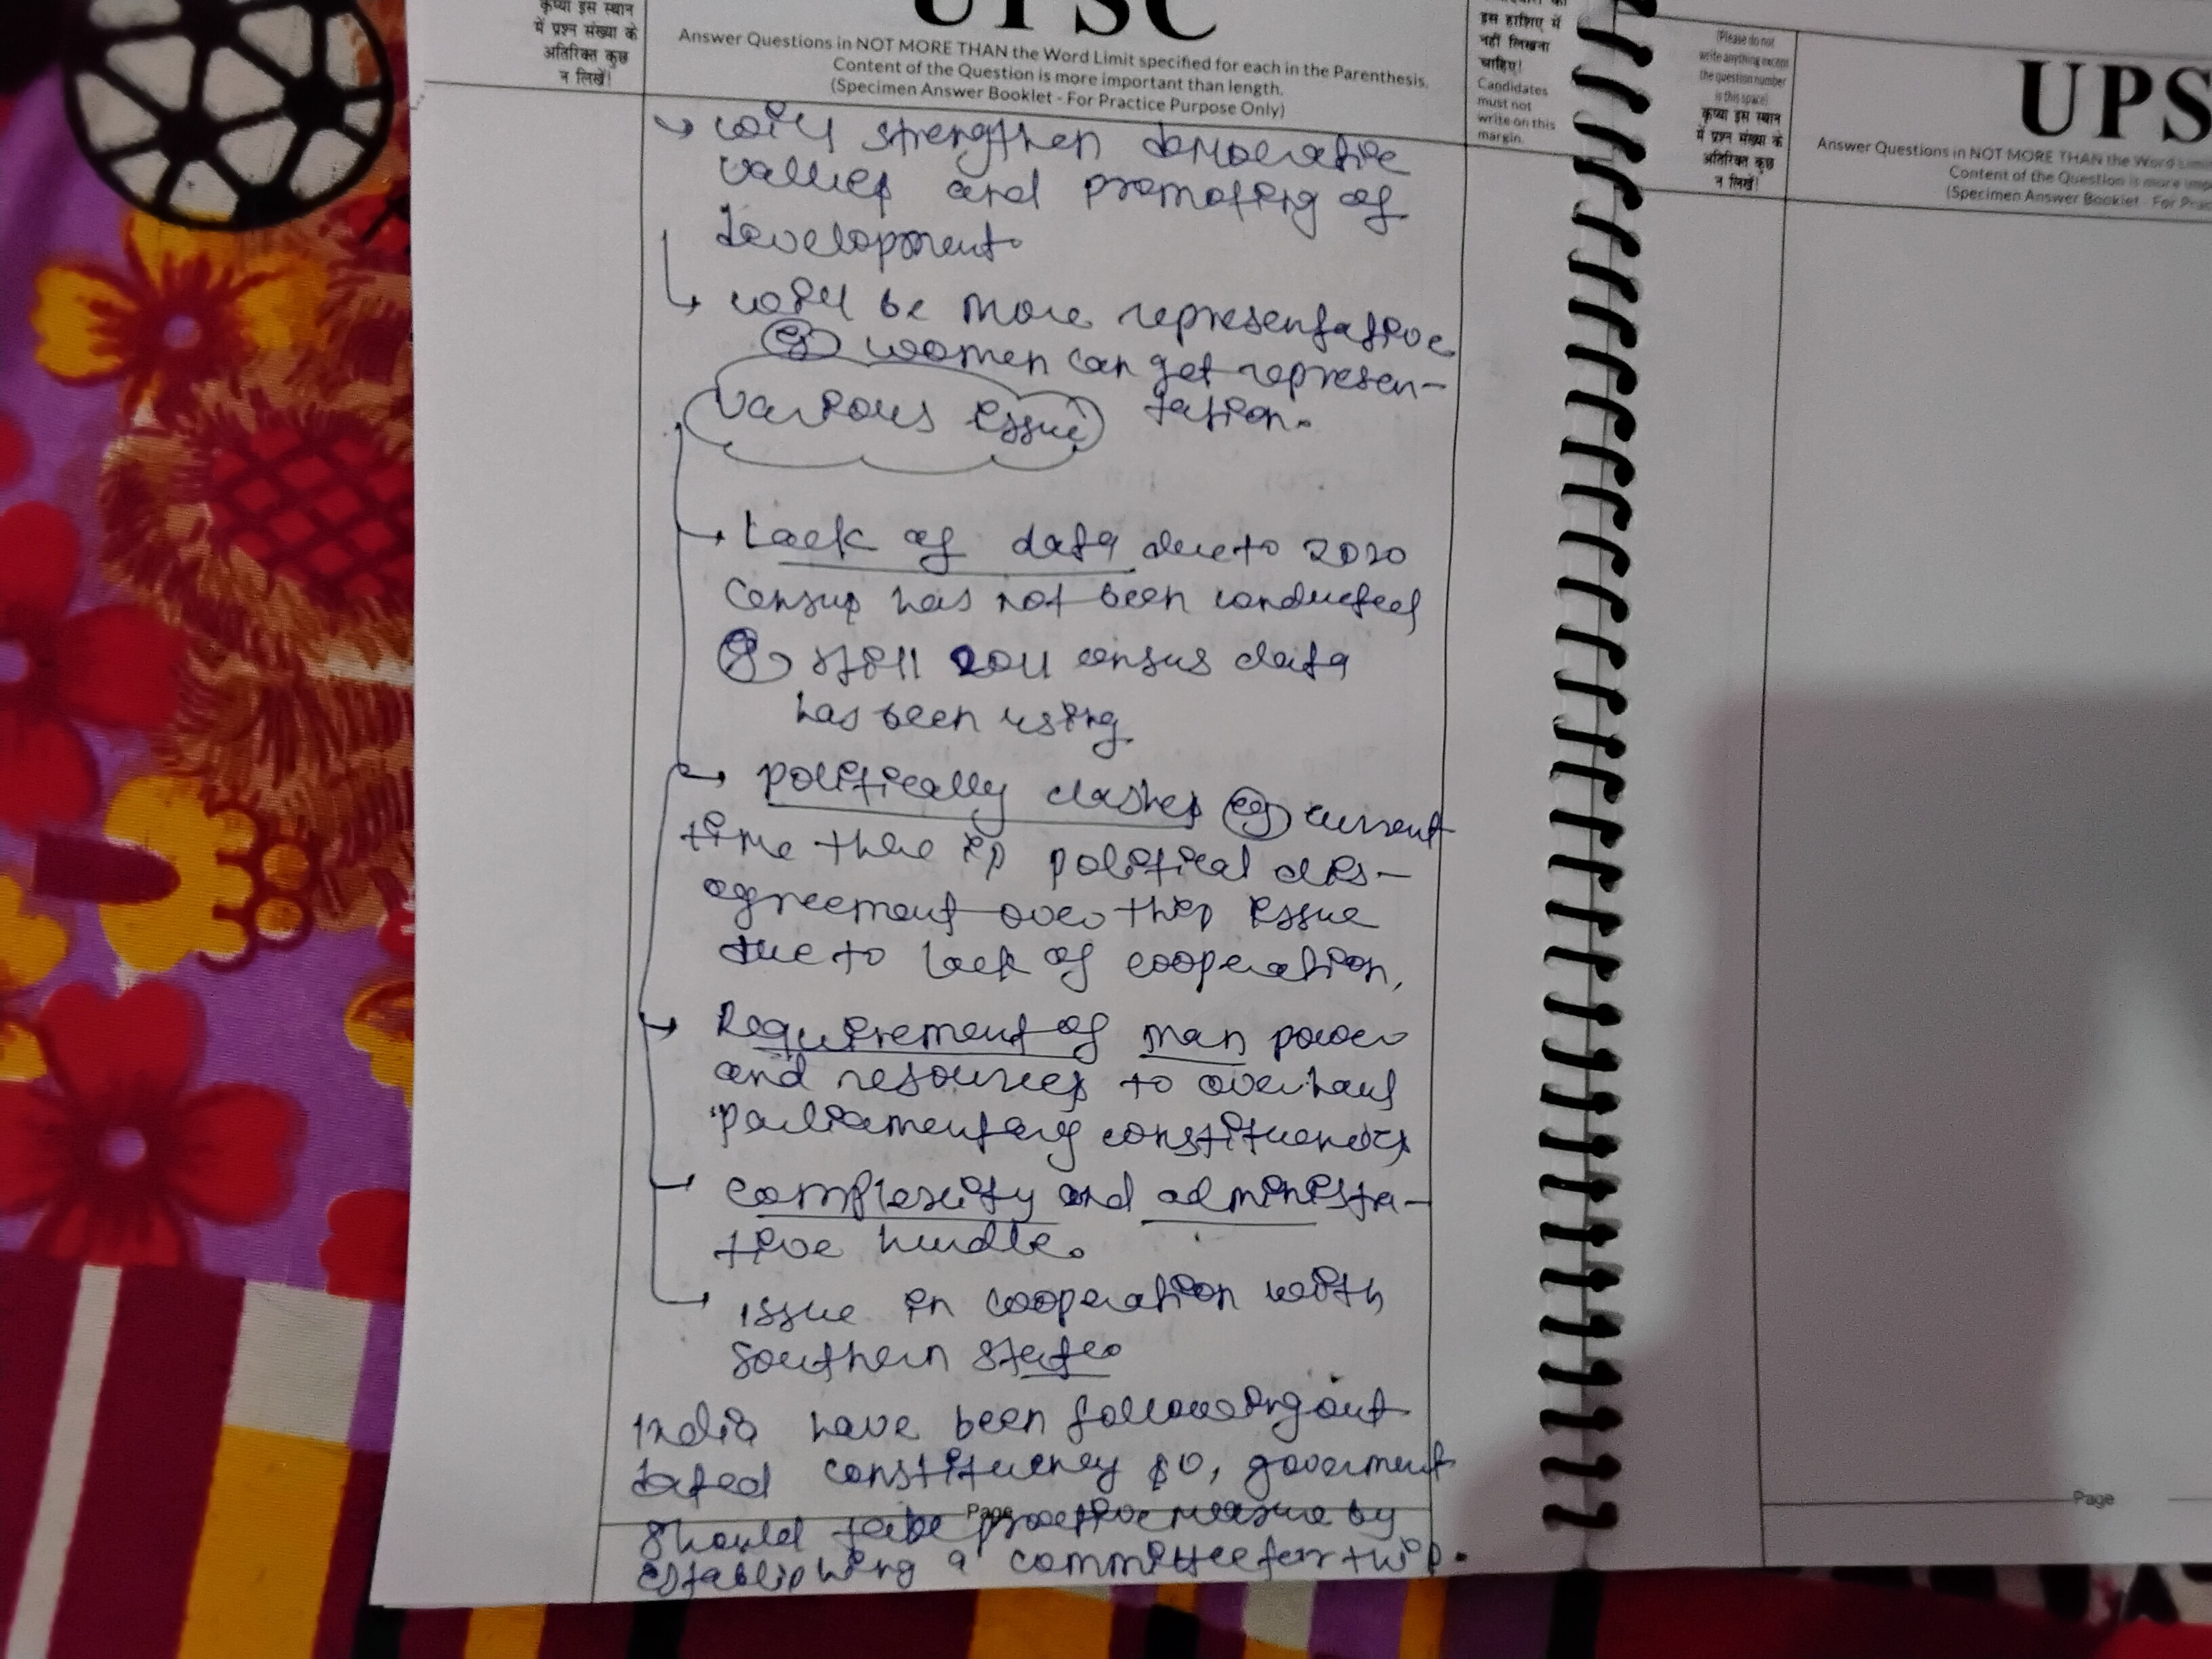 कृप्या इस स्थान
में प्रश्न संख्या के
अतिरिक्त कुछ
न लिखें!
UPSC
Answer Questions in NOT MORE THAN the Word Limit specified for each in the Parenthesis.
Content of the Question is more important than length.
(Specimen Answer Booklet - For Practice Purpose Only)
इस हाशिए में
नहीं लिखना
चाहिए!
Candidates
must not
write on this
margin.
→ will strengthen democratic
values and promoting of
development.
→ will be more representative
eg women can get represen-
tation.
various issue
→ Lack of data due to 2020
census has not been conducted
eg still 2011 census data
has been using
→ politically clashes eg current
time there is political dis-
agreement over this issue
due to lack of cooperation,
→ Requirement of man power
and resources to overhaul
parliamentary constituencies
→ complexity and administra-
tive hurdle.
→ issue in cooperation with
Southern state.
India have been following out
dated constituency so, goverment
Page
should take proactive measure by
establishing a committee for this.
(Please do not
write anything except
the question number
in this space)
कृप्या इस स्थान
में प्रश्न संख्या के
अतिरिक्त कुछ
न लिखें!
UPS
Answer Questions in NOT MORE THAN the Word
Content of the Question is more
(Specimen Answer Booklet - For
Page